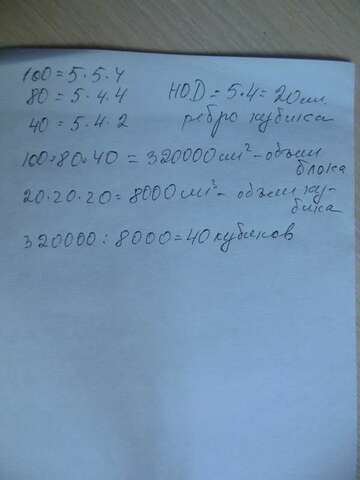 100 = 5 · 5 · 4
80 = 5 · 4 · 4
40 = 5 · 4 · 2
НОД = 5 · 4 = 20 см.
ребро кубика
100 · 80 · 40 = 320000 см² - объем
блока
20 · 20 · 20 = 8000 см³ - объем ку-
бика
320000 : 8000 = 40 кубиков